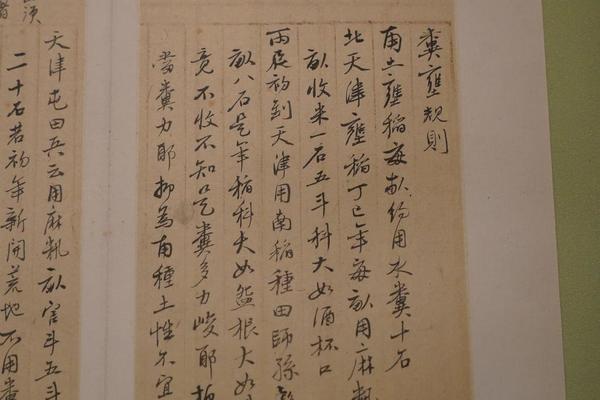 糞壅規則
南土壅稻每畝約用水糞十石
北天津壅稻丁巳年每畝用麻籸
畝收米一石五斗科大如酒杯口
丙辰初到天津用南稻種田師孫
畝八石是年稻科大如盌根大如
竟不收不知是糞多力峻耶抑
當糞力耶抑為南種土性不宜
天津屯田兵云用麻籸畝官斗五斗
二十石若初年新開荒地不用糞
須